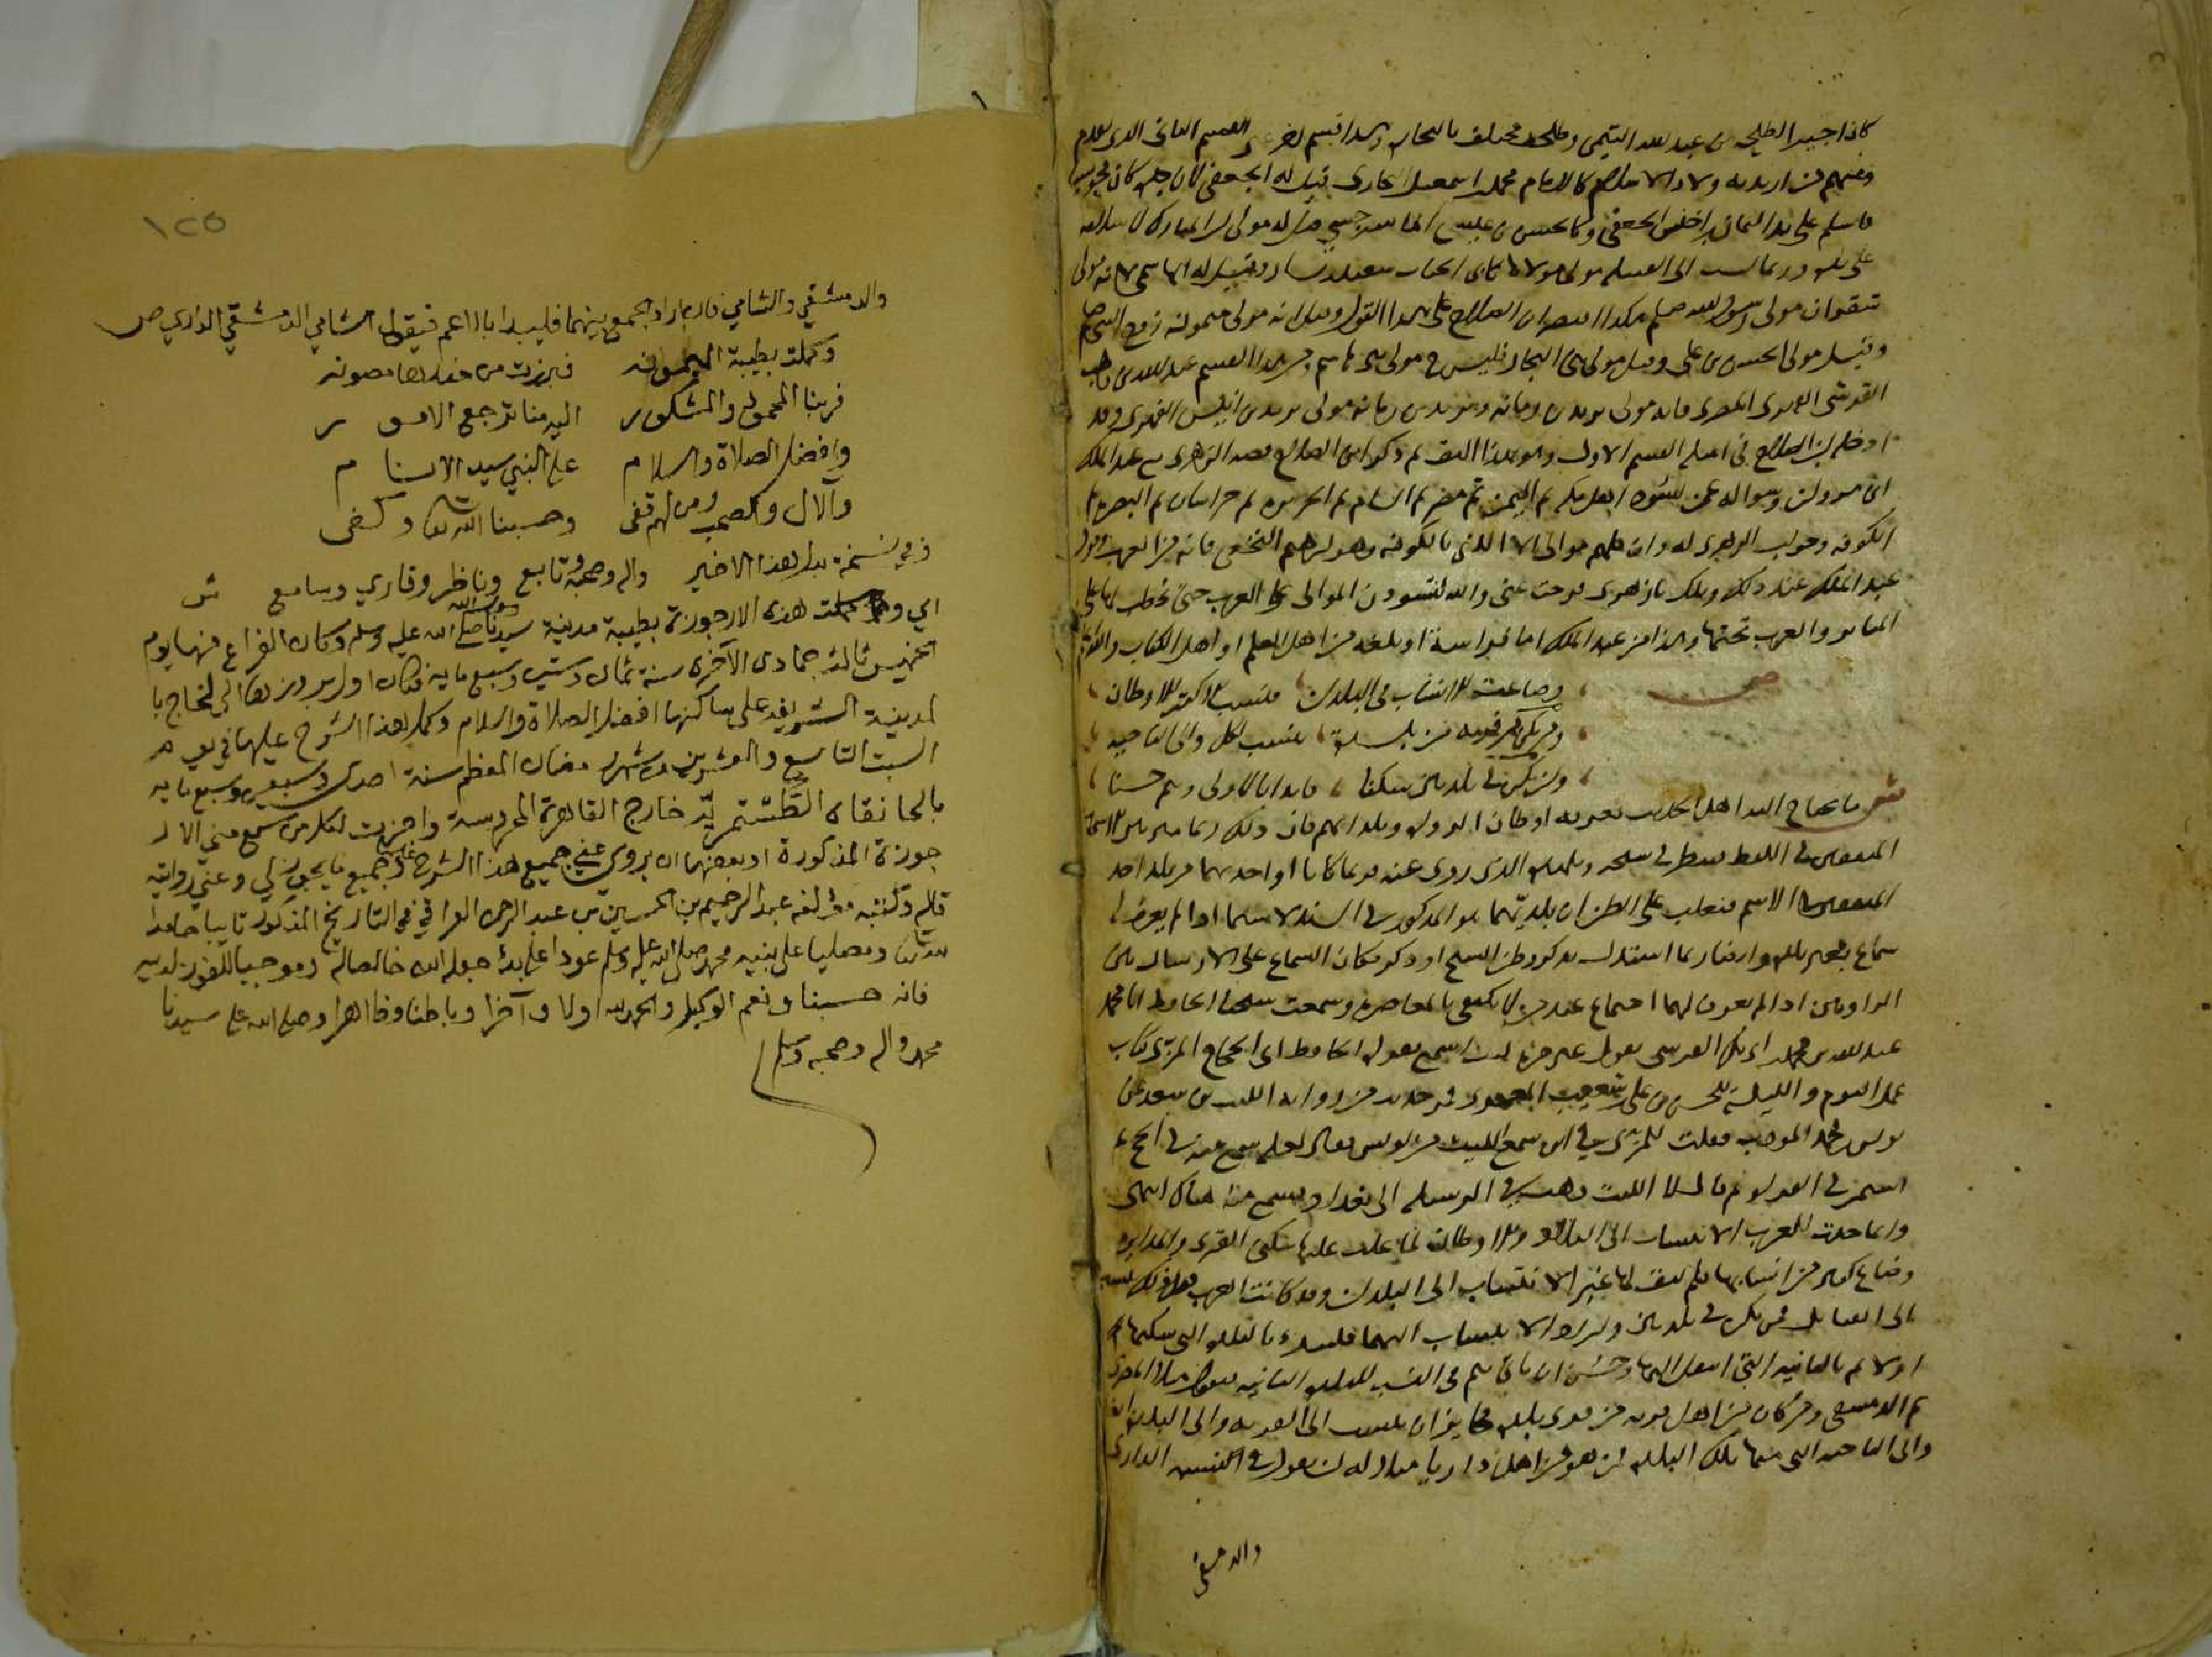 كان اجيرا لطلحة بن عبيد الله التيمي وطلحة
ومنهم من اريد به ولاء الاسلام كالامام محمد بن اسمعيل البخاري قيل له الجعفي لان جده كان مجوسيا
فاسلم على يد اليمان بن اخنس الجعفي وكالحسن بن عيسى
وربما نسب الى القبيلة مولى مولاها كابي الحباب سعيد بن يسار وقيل له الهاشمي لانه مولى
شقران مولى رسول الله صلعم هكذا اقتصر ابن الصلاح على هذا القول وقيل انه مولى ميمونة زوج النبي صلعم
وقيل مولى الحسن بن علي وقيل مولى بني النجار فليس ح مولى بني هاشم ومن هذا القسم عبد الله بن وهب
القرشي الفهري المصري فانه مولى يزيد بن رمانة ويزيد بن رمانة مولى يزيد بن انيس الفهري وقد
ادخله ابن الصلاح في امثلة القسم الاول ثم ذكر ابن الصلاح قصة الزهري مع عبد الملك
ابن مروان وسواله عمن يسود اهل مكة ثم اليمن ثم مصر ثم الشام ثم الجزيرة ثم خراسان ثم البصرة ثم
الكوفة وجواب الزهري له وان كلهم موالي الا الذي بالكوفة وهو ابرهيم النخعي فانه من العرب وقول
عبد الملك عند ذلك ويلك يا زهري فرجت عني والله لتسودن الموالي على العرب حتى يخطب لها على
المنابر والعرب تحتها وهذا من عبد الملك اما فراسة او بلغه من اهل العلم او اهل الكتاب والله اعلم
ص وضاعت الانساب في البلدان فنسب الاكثر للاوطان
ومن يكن من قرية من بلدة ينسب لكل والى الناحية
وان يكن في بلدتين سكنا فابدا بالاولى وبثم حسنا
ش مما يحتاج اليه اهل الحديث معرفة اوطان الرواة وبلدانهم فان ذلك ربما ميز بين الاسمين
المتفقين في اللفظ فينظر في شيخه وتلميذه الذي روى عنه فربما كانا او احدهما من بلد احد
المتفقين في الاسم فيغلب على الظن ان بلديهما هو المذكور في السند لا سيما اذا لم يعرف له
سماع بغير بلده وايضا ربما استدل بذكر وطن الشيخ او ذكر مكان السماع على الارسال بين
الراويين اذا لم يعرف لهما اجتماع عند من لا يكتفي بالمعاصرة وسمعت شيخنا الحافظ ابا محمد
عبد الله بن محمد بن ابي بكر القرشي يقول غير مرة انه سمع يقول الحافظ ابي الحجاج المزي كتاب
عمل اليوم والليلة للحسن بن علي بن شبيب المعمري فمر حديث من رواية الليث بن سعد عن
يونس بن محمد المودب فقلت للمزي في اين سمع الليث من يونس فقال لعله سمع منه في الحج ثم
استمر في القراة ثم قال لا الليث ذهب في الرسلية الى بغداد فسمع منه هناك انتهى
وانما حدث للعرب الانتساب الى البلاد والاوطان لما غلب عليها سكنى القرى والمداين
وضاع كثير من انسابها فلم يبق لها غير الانتساب الى البلدان وقد كانت العرب قبل ذلك تنسب
الى القبايل فمن سكن في بلدتين واراد الانتساب اليهما فليبدء بالبلد التي سكنها
اولا ثم بالثانية التي انتقل اليها وحسن ان ياتي بثم في النسب للبلدة الثانية فيقول مثلا المصري
ثم الدمشقي ومن كان من اهل قرية من قرى بلدة فجايز ان ينسب الى القرية والى البلدة ايضا
والى الناحية التي منها تلك البلدة فمن هو من اهل داريا مثلا له ان يقول في النسب الداري
والدمشقي
١٢٥
والدمشقي والشامي فان اراد الجمع بينهما فليبدا بالاعم فيقول الشامي الدمشقي الداري ص
وكملت بطيبة الميمونه فبرزت من خدرها مصونه
فربنا المحمود والمشكور اليه منا ترجع الامور
وافضل الصلاة والسلام على النبي سيد الانام
والآل والصحب ومن لهم قفى وحسبنا الله تعالى وكفى
وفي نسخة بدل هذا الاخير واله وصحبه وتابع وناظر وقاري وسامع ش
اي وكملت هذه الارجوزة بطيبة مدينة سيدنا رسول الله صلى الله عليه وسلم وكان الفراغ منها يوم
الخميس ثالث جمادى الآخرة سنة ثمان وستين وسبع ماية فكان اول بروزها الى الخارج بالـ
لمدينة الشريفة على ساكنها افضل الصلاة والسلام وكمل هذا الشرح عليها في يوم
السبت التاسع والعشرين من شهر رمضان المعظم سنة احدى وسبعين وسبع ماية
بالخانقاه الطشتمرية خارج القاهرة المحروسة واجزت لكل من سمع مني الار
جوزة المذكورة او بعضها ان يروي عني جميع هذا الشرح عليها وجميع ما يجوز لي وعني روايته
قاله وكتبه مؤلفه عبد الرحيم بن الحسين بن عبد الرحمن العراقي في التاريخ المذكور تاييا حامدا
لله تعالى ومصليا على نبيه محمد صلى الله عليه وسلم عودا على بدء جعله الله خالصا له وموجبا للفوز لديه
فانه حسبنا ونعم الوكيل والحمد لله اولا وآخرا وباطنا وظاهرا وصلى الله على سيدنا
محمد واله وصحبه وسلم